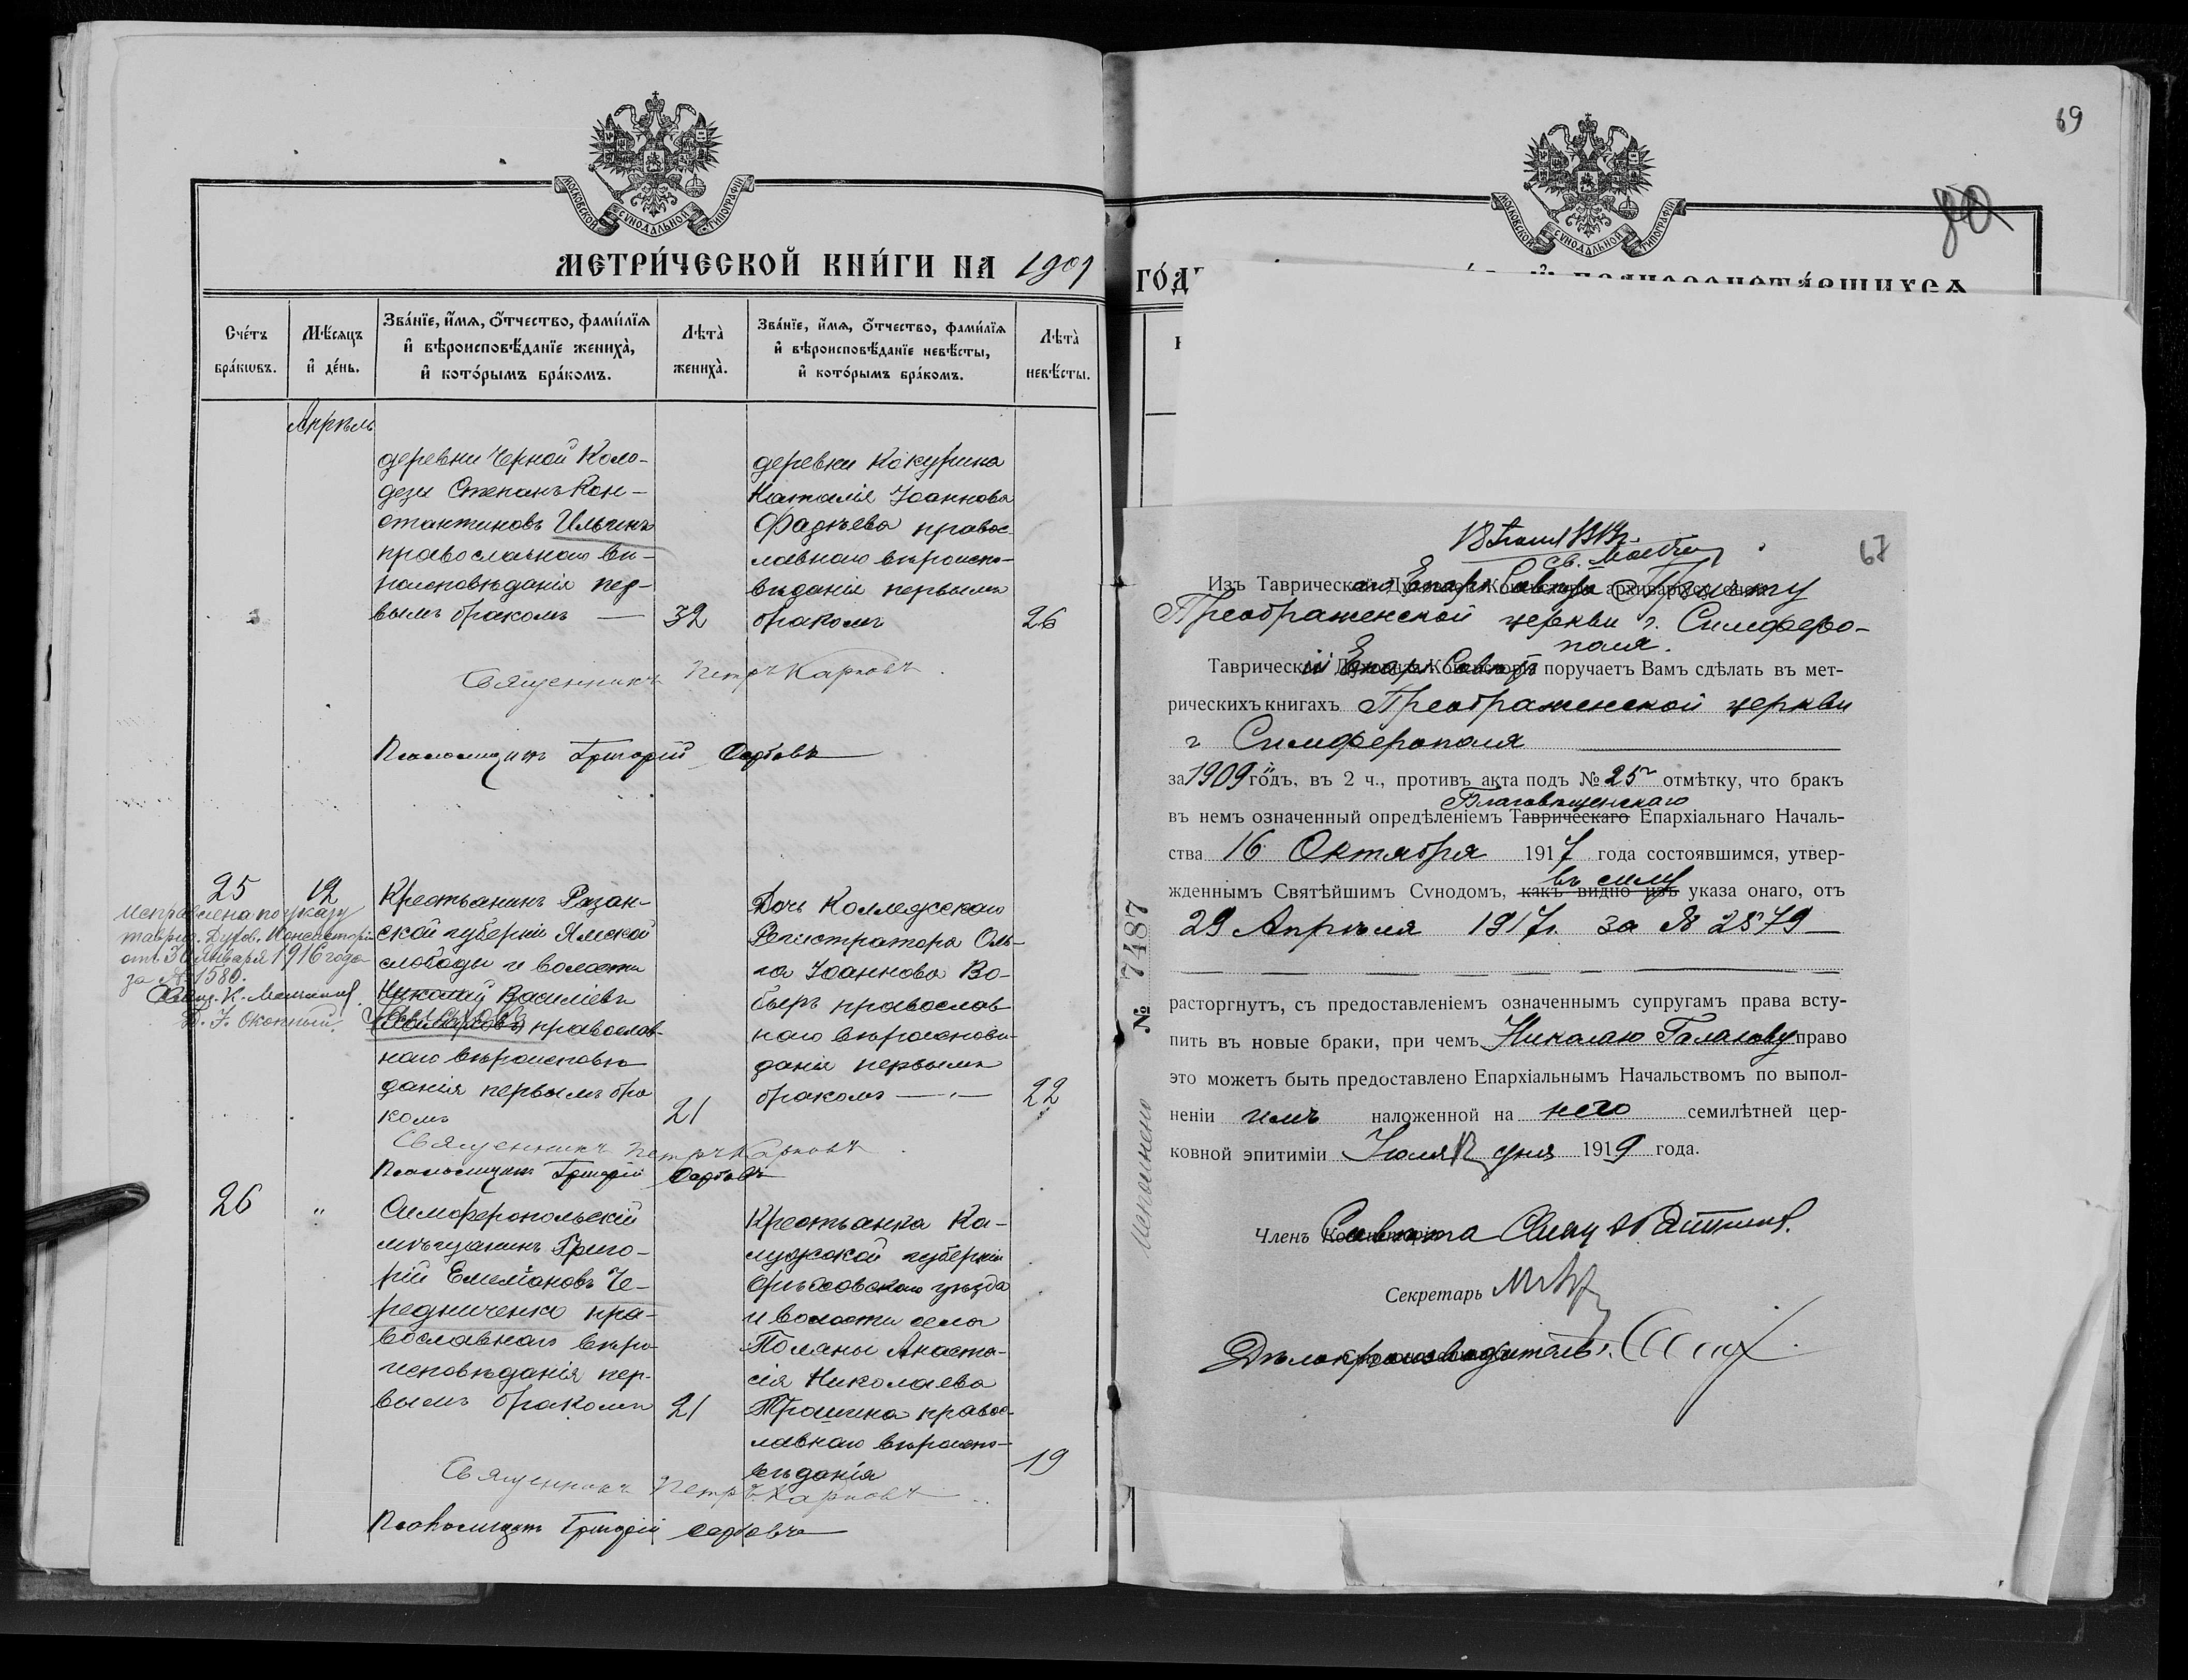 МОСКОВСКОЙ СѴНОДАЛЬНОЙ ТИПОГРАФІИ
МЕТРИ́ЧЕСКОЙ КНИ́ГИ НА 1909
Сче́тъ бра́кωвъ.
Мѣ́сяцъ и҆ де́нь.
Зва́нїе, и҆́мѧ, ѻ҆́тчество, фамѝлїѧ
и҆ вѣроисповѣ́данїе женихà,
и҆ кото́рымъ бра́комъ.
Лѣтà женихà.
Зва́нїе, и҆́мѧ, ѻ҆́тчество, фамѝлїѧ
и҆ вѣроисповѣ́данїе невѣ́сты,
и҆ кото́рымъ бра́комъ.
Лѣтà невѣ́сты.
Апрѣль
деревни Черной Коло-
дези Степанъ Кон-
стантиновъ Ильинъ
православнаго вѣ-
роисповѣданія пер-
вымъ бракомъ — 32
деревни Кокурина
Наталія Іоаннова
Фадѣева правос-
лавнаго вѣроиспо-
вѣданія первымъ
бракомъ 26
Священникъ Петръ Карповъ.
Псаломщикъ Григорій
25 12
Исправлена по указу
таврич. Духов. Консисторіи
отъ 30 Января 1916 года
за № 1580.
Крестьянинъ Рязан-
ской губерніи Ямской
слободы и волости
Николай Василіевъ
православ-
наго вѣроисповѣ-
данія первымъ бра
комъ 21
Дочь Коллежскаго
Регистратора Оль-
га Іоаннова Во-
беръ православ
наго вѣроисповѣ-
данія первымъ
бракомъ — 22
Священникъ Петръ Карповъ.
Псаломщикъ Григорій
26 "
Симферопольскій
мѣщанинъ Григо-
рій Емеліановъ Че-
редниченко пра-
вославнаго вѣро
исповѣданія пер-
вымъ бракомъ 21
Крестьянка Ка-
лужской губерніи
уѣзда
и волости села
Поляны Анаста-
сія Николаева
Трошина правос-
лавнаго вѣроиспо-
вѣданія 19
Священникъ Петръ Карповъ
Псаломщикъ Григорій
69
80
МОСКОВСКОЙ СѴНОДАЛЬНОЙ ТИПОГРАФІИ
ГО́Д
67
Изъ Таврическаго Епарх. Совѣта Причту
Преображенской церкви г. Симферо-
поля.
Таврическій Епарх. Совѣтъ поручаетъ Вамъ сдѣлать въ мет-
рическихъ книгахъ Преображенской церкви
г Симферополя
за 1909 годъ, въ 2 ч., противъ акта подъ № 25 отмѣтку, что бракъ
Благовѣщенскаго
въ немъ означенный опредѣленіемъ Таврическаго Епархіальнаго Началь-
ства 16 Октября 1917 года состоявшимся, утвер-
въ силу
жденнымъ Святѣйшимъ Сѵнодомъ, какъ видно изъ указа онаго, отъ
29 Апрѣля 1917г. за № 2579
расторгнутъ, съ предоставленіемъ означеннымъ супругамъ права всту-
пить въ новые браки, при чемъ Николаю Галахову право
это может быть предоставлено Епархіальнымъ Начальствомъ по выпол-
неніи имъ наложенной на него семилѣтней цер-
ковной эпитиміи Іюля 12 дня 1919 года.
Членъ Совѣта Свящ.
Секретарь
Дѣлопроизводитель
Исполнено № 7487